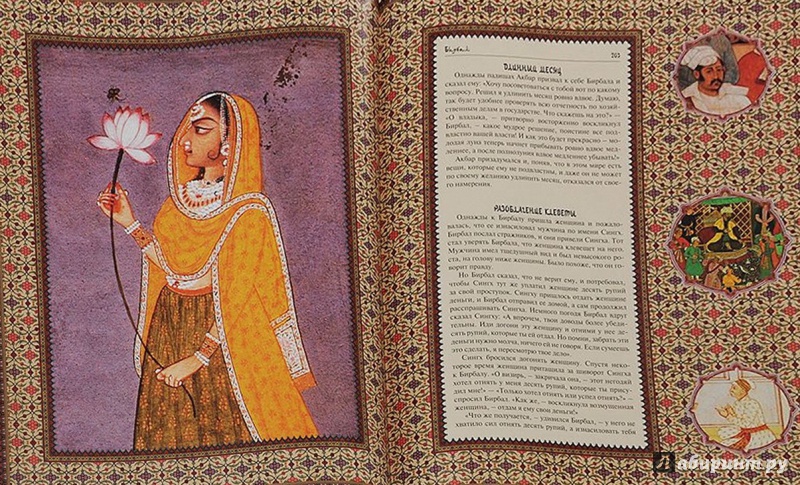 Бирбал
203
ДЛИННЫЙ МЕСЯЦ
Однажды падишах Акбар призвал к себе Бирбала и
сказал ему: «Хочу посоветоваться с тобой вот по какому
вопросу. Решил я удлинить месяц ровно вдвое. Думаю,
так будет удобнее проверять всю отчетность по хозяй-
ственным делам в государстве. Что скажешь на это?» –
«О владыка, – притворно восторженно воскликнул
Бирбал, – какое мудрое решение, поистине все под-
властно вашей власти! И как это будет прекрасно – мо-
лодая луна теперь начнет прибывать ровно вдвое мед-
леннее, а после полнолуния вдвое медленнее убывать!»
Акбар призадумался и, поняв, что в этом мире есть
вещи, которые ему не подвластны, и даже он не может
по своему желанию удлинить месяц, отказался от свое-
го намерения.
РАЗОБЛАЧЕНИЕ КЛЕВЕТЫ
Однажды к Бирбалу пришла женщина и пожало-
валась, что ее изнасиловал мужчина по имени Сингх.
Бирбал послал стражников, и они привели Сингха. Тот
стал уверять Бирбала, что женщина клевещет на него.
Мужчина имел тщедушный вид и был невысокого ро-
ста, на голову ниже женщины. Было похоже, что он го-
ворит правду.
Но Бирбал сказал, что не верит ему, и потребовал,
чтобы Сингх тут же уплатил женщине десять рупий
за свой проступок. Сингху пришлось отдать женщине
деньги, и Бирбал отправил ее домой, а сам продолжил
расспрашивать Сингха. Немного погодя Бирбал вдруг
сказал Сингху: «А впрочем, твои доводы более убеди-
тельны. Иди догони эту женщину и отними у нее де-
сять рупий, которые ты ей отдал. Но помни, забрать эти
деньги нужно молча, ничего ей не говоря. Если сумеешь
это сделать, я пересмотрю твое дело».
Сингх бросился догонять женщину. Спустя неко-
торое время женщина притащила за шиворот Сингха
к Бирбалу. «О визирь, – закричала она, – этот негодяй
хотел отнять у меня десять рупий, которые ты прису-
дил мне!» – «Только хотел отнять или успел отнять?» –
спросил Бирбал. «Как же, – воскликнула возмущенная
женщина, – отдам я ему свои деньги!»
«Что же получается, – удивился Бирбал, – у него не
хватило сил отнять десять рупий, а изнасиловать тебя
Лабиринт.ру